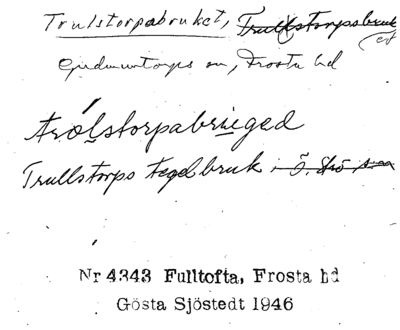 Trulstorpabruket, Trullstorpsbruk
et
Gudmuntorps sn, Frosta hd
trólstorpabrueged
Trullstorps tegelbruk i Ö. Strö s:n
Nr 4343 Fulltofta, Frosta hd
Gösta Sjöstedt 1946